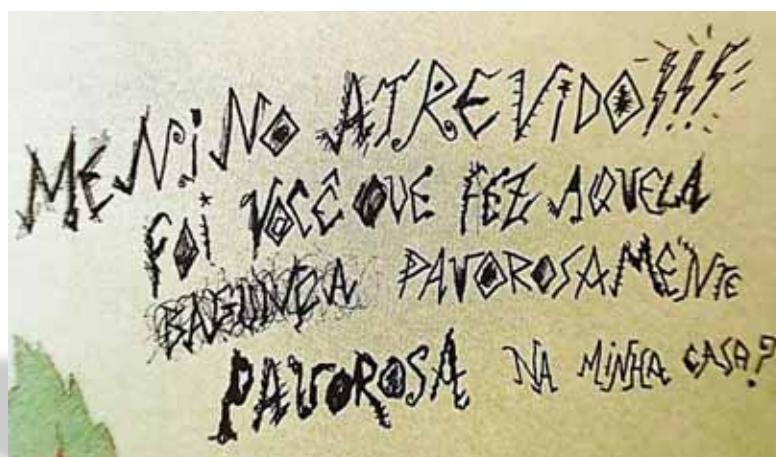 MENINO ATREVIDO!!!
FOI VOCÊ QUE FEZ AQUELA
BAGUNÇA PAVOROSAMENTE
PAVOROSA NA MINHA CASA?